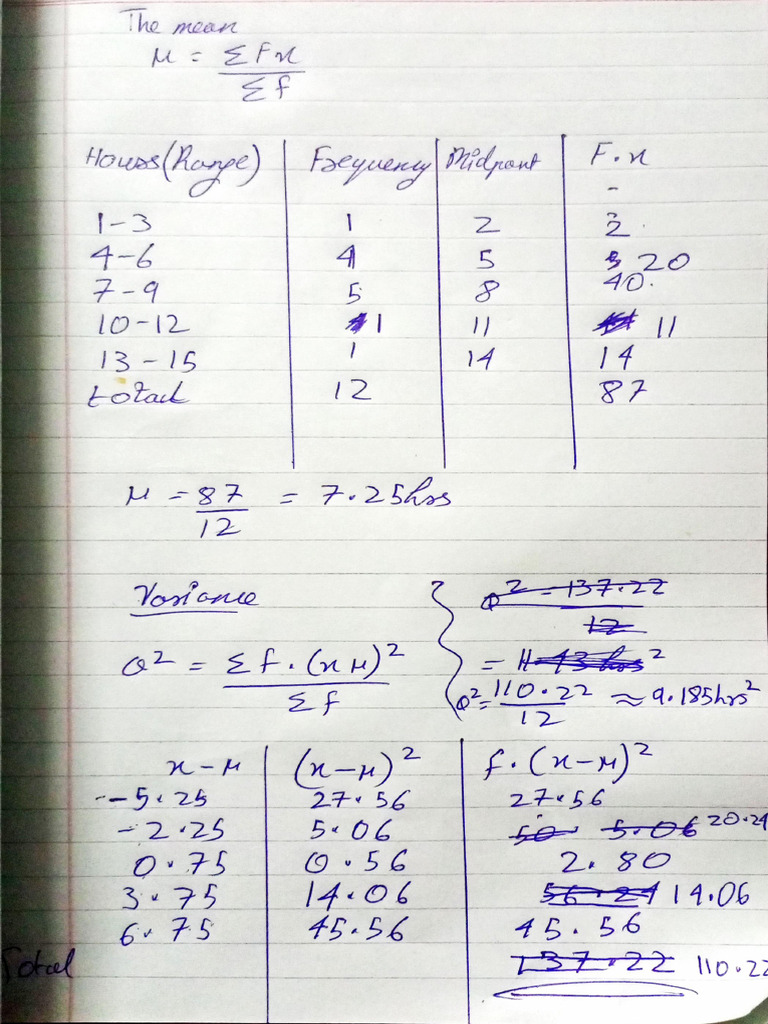 The mean
μ = ΣFx / Σf
Hours(Range) Frequency Midpoint F.x
-
1-3 1 2 2
4-6 4 5 20
7-9 5 8 40.
10-12 1 11 11
13-15 1 14 14
total 12 87
μ = 87/12 = 7.25hrs
Variance
σ² = Σf.(x μ)² / Σf
σ² = 137.22 / 12
= 11.43 hrs²
σ² = 110.22 / 12 ≈ 9.185hrs²
x-μ (x-μ)² f.(x-μ)²
--5.25 27.56 27.56
-2.25 5.06 50. 5.06 20.24
0.75 0.56 2.80
3.75 14.06 56.24 14.06
6.75 45.56 45.56
Total 137.22 110.22